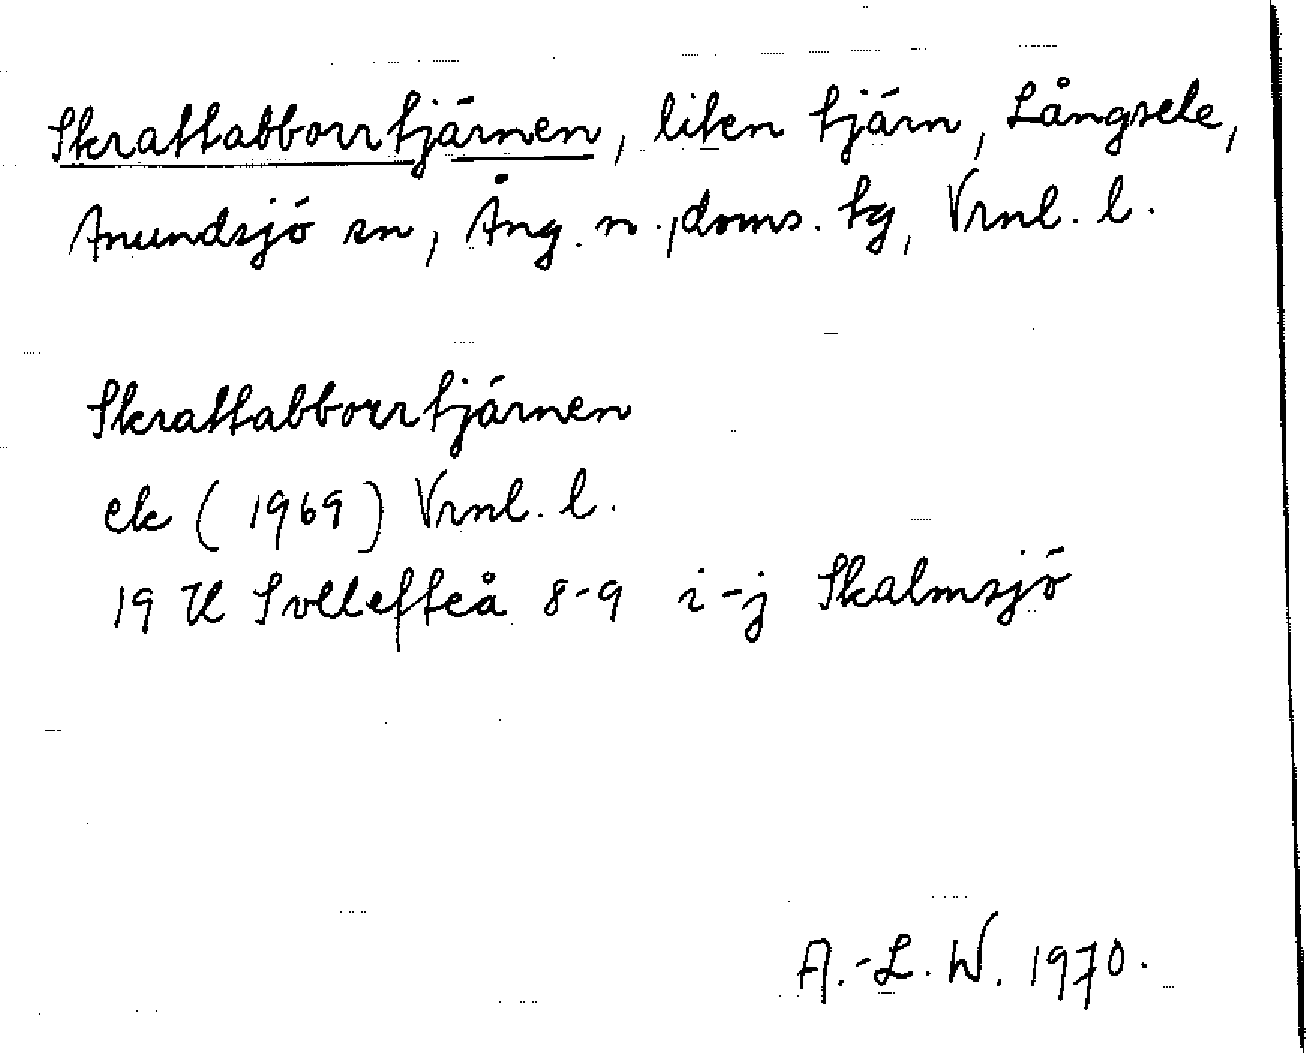 Skrattabborrtjärnen, liten tjärn, Långsele,
Anundsjö sn, Ång. n., doms. tg, Vrnl. l.
Skrattabborrtjärnen
ek (1969) Vrnl. l.
19 H Sollefteå 8-9 i-j Skalmsjö
A.-L. W. 1970.